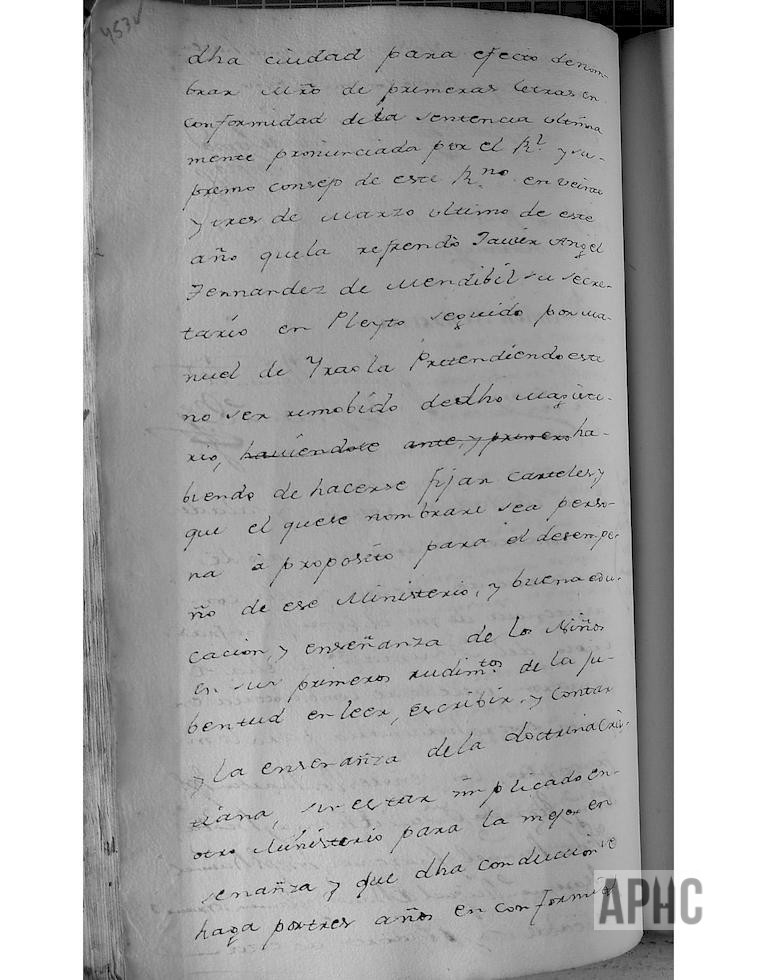 453v
dha ciudad para efecto denom-
brar Mro de primeras letras en
conformidad dela sentencia ultima
mente pronunciada por el Rl. y su-
premo consejo de este Rno. en veinte
y tres de Marzo ultimo de este
año quela refrendò Javier Angel
Fernandez de Mendibil su secre-
tario en Pleyto seguido por Ma-
nuel de Yraola Pretendiendo este
no ser remobido dedho Magiste-
rio, haviendose ante, y primero ha-
biendo de hacerse fijar carteles, y
que el quese nombrare sea perso-
na à proposito para el desempe-
ño de ese Ministerio, y buena edu-
cacion y enseñanza de los Niños
en sus primeros rudimtos. de la ju-
bentud en leer, escribir, y contar
y la enseñanza dela doctrina Cris-
tiana, sin estar implicado en
otro Ministerio para la mejor en
señanza y que dha conduccion se
haga por tres años en conformid
APHC